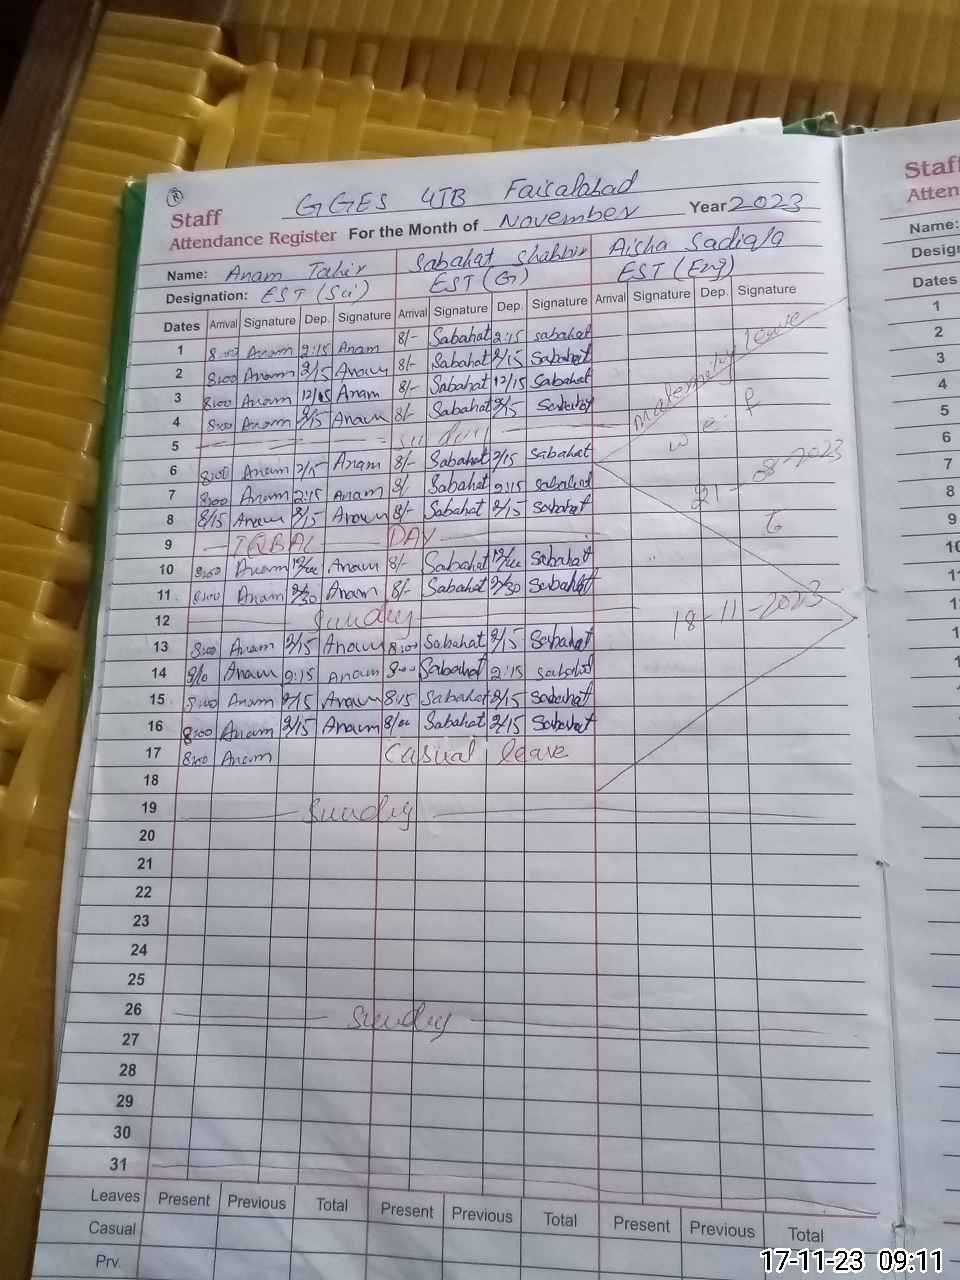 R
Staff GGES 4JB Faisalabad
Attendance Register For the Month of November Year 2023
Name: Anam Tahir Sabahat Shabbir Aisha Sadiqa
Designation: EST (Sci) EST (G) EST (Eng)
Dates Arrival Signature Dep. Signature Arrival Signature Dep. Signature Arrival Signature Dep. Signature
1 8:00 Anam 2:15 Anam 8/- Sabahat 2:15 sabahat
2 8:00 Anam 2/15 Anam 8/- Sabahat 2/15 Sabahat
3 8:00 Anam 12/15 Anam 8/- Sabahat 12/15 Sabahat
4 8:00 Anam 2/15 Anam 8/- Sabahat 2/15 Sabahat
5 Sunday
6 8:00 Anam 2/15 Anam 8/- Sabahat 2/15 Sabahat
7 8:00 Anam 2:15 Anam 8/- Sabahat 2:15 sabahat
8 8/15 Anam 2/15 Anam 8/- Sabahat 2/15 Sabahat
9 IQBAL DAY
10 8:00 Anam Anam 8/- Sabahat Sabahat
11 8:00 Anam 2/30 Anam 8/- Sabahat 2/30 Sabahat
12 Sunday
13 8:00 Anam 2/15 Anam 8:00 Sabahat 2/15 Sabahat
14 8/10 Anam 2:15 Anam 8:00 Sabahat 2:15 sabahat
15 8:00 Anam 2/15 Anam 8:15 Sabahat 2/15 Sabahat
16 8:00 Anam 2/15 Anam 8/00 Sabahat 2/15 Sabahat
17 8:00 Anam Casual leave
18
19 Sunday
20
21
22
23
24
25
26 Sunday
27
28
29
30
31
Maternity leave
w.e.f
21-08-2023
to
18-11-2023
Leaves Present Previous Total Present Previous Total Present Previous Total
Casual
Prv.
Staff
Atten
Name:
Design
Dates
1
2
3
4
5
6
7
8
9
10
17-11-23 09:11